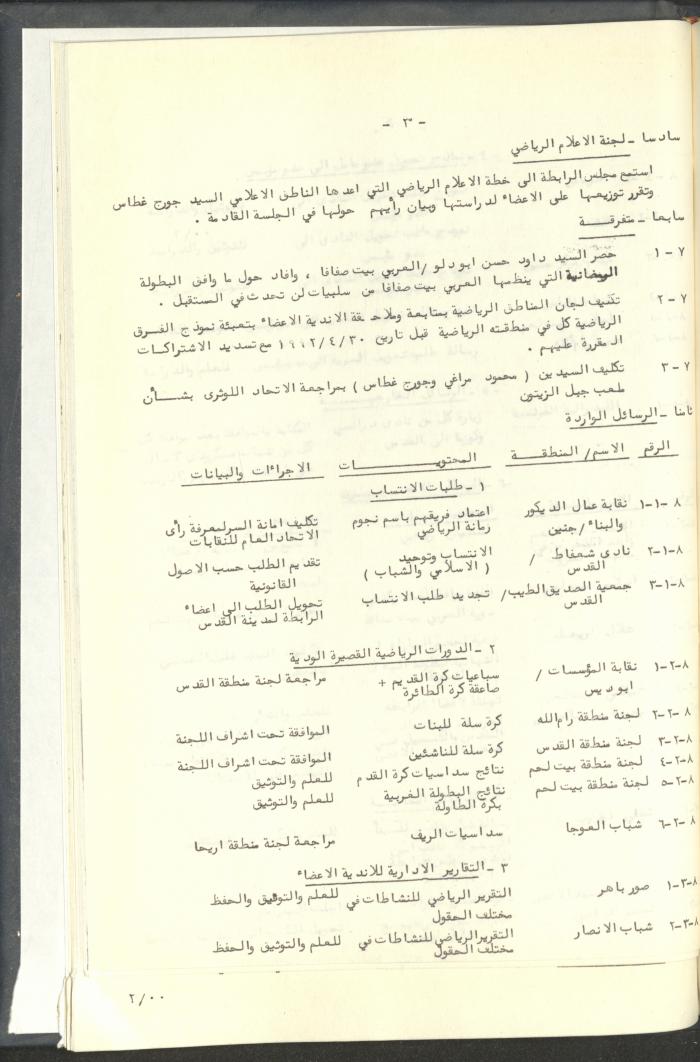 - ٣ -
سادسا - لجنة الاعلام الرياضي
استمع مجلس الرابطة الى خطة الاعلام الرياضي التي اعدها الناطق الاعلامي السيد جورج غطاس
وتقرر توزيعها على الاعضاء لدراستها وبيان رأيهم حولها في الجلسة القادمة .
سابعا - متفرقة
٧ - ١ حضر السيد داود حسن ابو دلو / العربي بيت صفافا ، وافاد حول ما وافق البطولة
الرمضانية التي ينظمها العربي بيت صفافا من سلبيات لن تحدث في المستقبل .
٧ - ٢ تكليف لجان المناطق الرياضية بمتابعة وملاحقة الاندية الاعضاء بتعبئة نموذج الفرق
الرياضية كل في منطقته الرياضية قبل تاريخ ١٩٩٢/٤/٣٠ مع تسديد الاشتراكات
المقررة عليهم .
٧ - ٣ تكليف السيدين ( محمود مراغي وجورج غطاس ) بمراجعة الاتحاد اللوثرى بشأن
ملعب جبل الزيتون
ثامنا - الرسائل الواردة
الرقم الاسم / المنطقة المحتويات الاجراءات والبيانات
١ - طلبات الانتساب
٨-١-١ نقابة عمال الديكور اعتماد فريقهم باسم نجوم تكليف امانة السر لمعرفة رأى
والبناء / جنين رمانة الرياضي الاتحاد العام للنقابات
٨-١-٢ نادى شعفاط / الانتساب وتوحيد تقديم الطلب حسب الاصول
القدس ( الاسلامي والشباب ) القانونية
٨-١-٣ جمعية الصديق الطيب / تجديد طلب الانتساب تحويل الطلب الى اعضاء
القدس الرابطة لمدينة القدس
٢ - الدورات الرياضية القصيرة الودية
٨-٢-١ نقابة المؤسسات / سباعيات كرة القديم + مراجعة لجنة منطقة القدس
ابو ديس صاعقة كرة الطائرة
٨-٢-٢ لجنة منطقة رام الله كرة سلة للبنات الموافقة تحت اشراف اللجنة
٨-٢-٣ لجنة منطقة القدس كرة سلة للناشئين الموافقة تحت اشراف اللجنة
٨-٢-٤ لجنة منطقة بيت لحم نتائج سداسيات كرة القدم للعلم والتوثيق
٨-٢-٥ لجنة منطقة بيت لحم نتائج البطولة الغربية للعلم والتوثيق
بكرة الطاولة
٨-٢-٦ شباب العوجا سداسيات الريف مراجعة لجنة منطقة اريحا
٣ - التقارير الادارية للاندية الاعضاء
٨-٣-١ صور باهر التقرير الرياضي للنشاطات في للعلم والتوثيق والحفظ
مختلف الحقول
٨-٣-٢ شباب الانصار التقرير الرياضي للنشاطات في للعلم والتوثيق والحفظ
مختلف الحقول
٢/٠٠